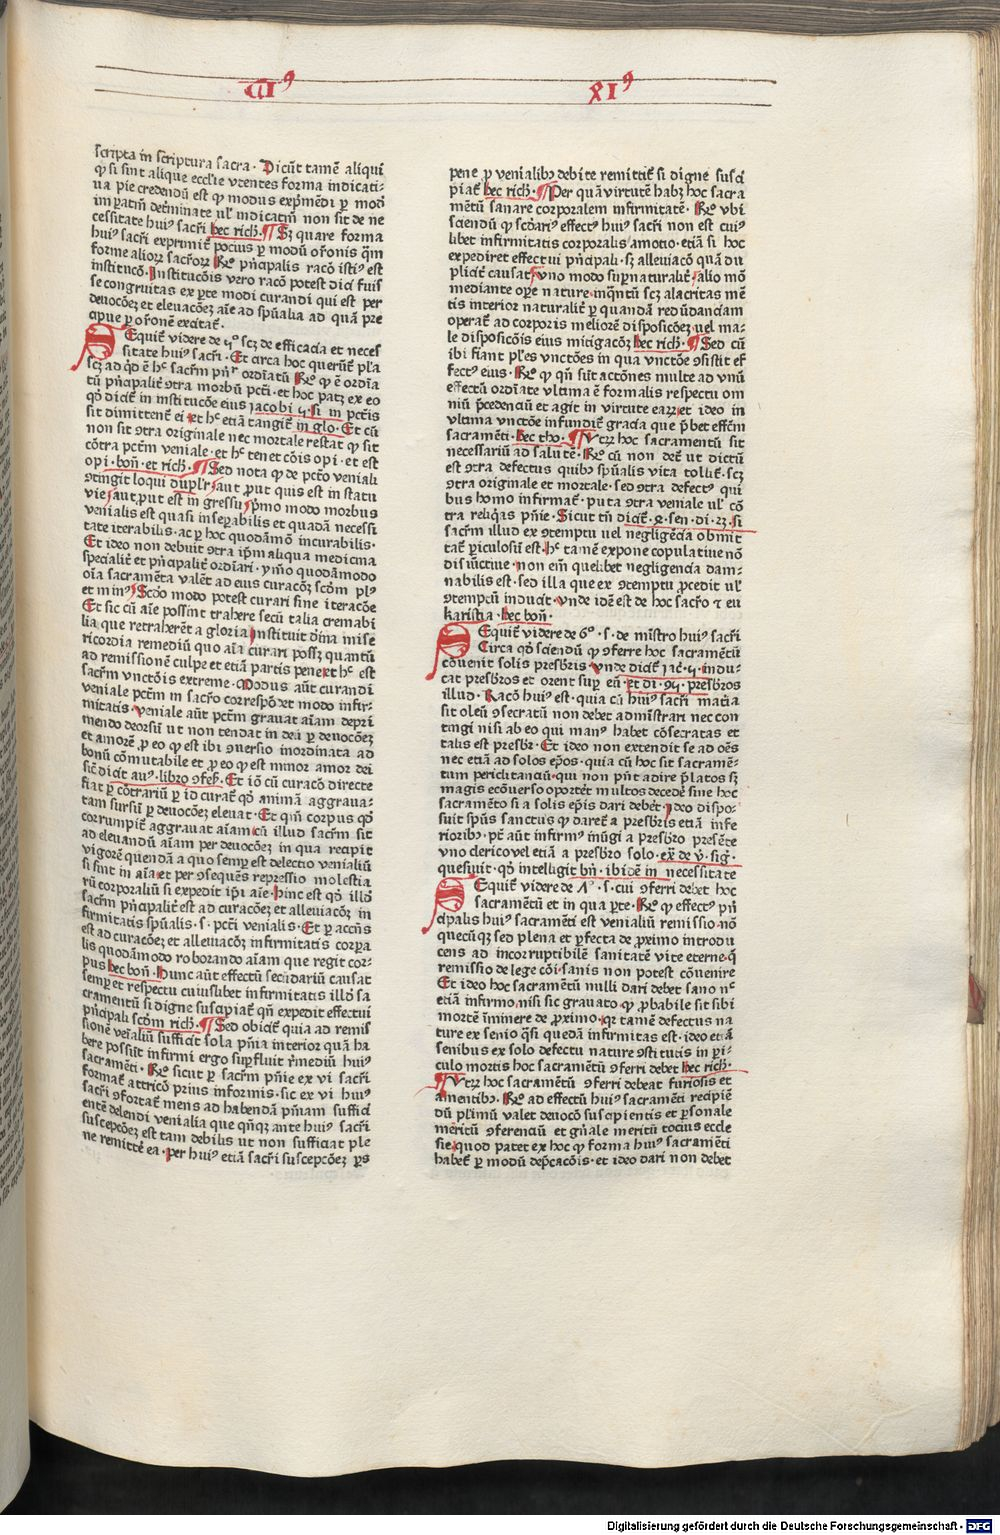 VIꝰ XIꝰ
scripta in scriptura sacra· Dicūt tamē aliqui
ꝙ si sint alique ecclīe vtentes forma indicati-
ua pie credendū est ꝙ modus exp̄mēdi ꝑ mod
im ꝑatiū det̄minate ul̓ indicatiū non sit de ne
cessitate huiꝰ sacr̄i hec rich̄·¶ Sꝫ quare forma
huiꝰ sacr̄i exprimit̄ pocius ꝑ modū or̄onis q̄m
forme alioꝝ sacr̄oꝝ R̄o pn̄cipalis racō istiꝰ est
institucō· Institucōis vero racō potest dici fuis
se congruitas ex ꝑte modi curandi qui est per
deuocōeꝫ et eleuacōeꝫ aīe ad spūalia ad quā pre
cipue ꝑ or̄onē excitat̄·
SEquit̄ videre de ꝗͦ scꝫ de efficacia et neces
sitate huiꝰ sacr̄i· Et circa hoc querūt̄ pl̄a
scꝫ ad qd̄ ē hͨ sacr̄m pn̄r ordīatū R̄o ꝙ ē ordīa
tū pn̄apalit̄ ꝯtra morbū pctī· et hoc patꝫ ex eo
qd̄ dicit̄ in institucōe eius jacobi ꝗ· si in pctīs
sit dimittent̄ ei· et hͨ etiā tangit̄ in glo· Et cū
non sit ꝯtra originale nec mortale restat ꝙ sit
cōtra pctm̄ veniale· et hͨ tenet cōis opi· et est
opi· bon̄· et rich̄·¶ Sed nota ꝙ de pctō veniali
ꝯtingit loqui duplr̄ aut ꝓut quis est in statu
vie aut ꝓut est in gressu p̄mo modo morbus
venialis est quasi insepabilis et quadā necessi
tate iterabilis· ac ꝑ hoc quodāmō incurabilis·
Et ideo non debuit ꝯtra ip̄m aliqua medicina
specialit̄ et pn̄cipalit̄ ordīari· ymō quodāmodo
oīa sacramēta valēt ad eius curacōꝫ scd̄m plꝰ
et minꝰ Scd̄o modo potest curari sine iteracōe
Et sic cū aīe possint trahere secū talia cremabi
lia que retraherēt a gloria instituit dn̄a mise
ricordia remediū quo aīa curari possꝫ quantū
ad remissionē culpe et etiā partis pene et hͨ est
sacr̄m vnctōis extreme· Modus aūt curandi
veniale pctm̄ in sacr̄o correspōdet modo infir-
mitatis· veniale aūt pctm̄ grauat aīam depri
mendo deorsū ut non tendat in deū ꝑ deuocōeꝫ
et amorē ꝓ eo ꝙ est ibi ꝯuersio inordinata ad
bonū cōmutabile et ꝓ eo ꝙ est minor amor dei
sic̄ dicit auꝰ· libro ꝯfes̄· Et iō cū curacō directe
fiat ꝑ cōtrariū ꝑ id curat̄ qd̄ animā aggraua-
tam sursū ꝑ deuocōeꝫ eleuat· Et qn̄ corpus qd̄
corrumpit̄ aggrauat aīam cū illud sacr̄m sit
ad eleuandū aīam per deuocōeꝫ in qua recipit
vigorē quendā a quo semꝑ est delectio venialiū
si sint in aīa et per ꝯsequēs repressio molestia
rū corporaliū si expedit ip̄i aīe· hinc est qd̄ illd̄
sacr̄m pn̄cipalit̄ est ad curacōeꝫ et alleuiacōꝫ in
firmitatis spūalis· s· pctī venialis· Et ꝑ accn̄s
est ad curacōeꝫ et alleuiacōꝫ infirmitatis corꝑa
lis quodāmodo roborando aīam que regit cor-
pus hec bon̄· Hunc aūt effectū secūdariū causat
semꝑ et respectu cuiuslibet infirmitatis illd̄ sa
cramentū si digne suscipiat̄ qn̄ expedit effectui
pn̄cipali scd̄m rich̄·¶ Sed obicit̄ quia ad remis
sionē venialiū sufficit sola pn̄ia interior quā ha
bere possūt infirmi ergo suꝑfluit r̄mediū huiꝰ
sacramēti· R̄o sicut ꝑ sacr̄m pn̄ie ex vi sacr̄i
format̄ attricō prius informis· sic ex vi huiꝰ
sacr̄i ꝯfortat̄ mens ad habendā pn̄iam suffici
entē delendi venialia que qn̄qꝫ ante huiꝰ sacr̄i
suscepcōeꝫ est tam debilis ut non sufficiat ple
ne remittē ea· per huiꝰ etiā sacr̄i suscepcōeꝫ ꝑs
pene ꝓ venialibꝫ debite remittit̄ si digne susci
piat̄ hec rich̄·¶ Per quā virtutē habꝫ hoc sacra
mētū sanare corporalem infirmitatē· R̄o vbi
sciendū ꝙ scd̄ariꝰ effectꝰ huiꝰ sacr̄i non est cuiꝰ
libet infirmitatis corporalis amotio· etiā si hoc
expediret effectui pn̄cipali· sꝫ alleuiacō quā du
plicit̄ causat vno modo suꝑnaturalit̄ alio mō
mediante oꝑe nature inqn̄tū scꝫ alacritas mē
tis interior naturalit̄ ꝑ quandā redūdanciam
operat̄ ad corporis meliorē disposicōeꝫ uel ma-
le disposicōis eius mitigacōꝫ hec rich̄·¶ Sed cū
ibi fiant pl̄es vnctōes in qua vnctōe ꝯsistit ef
fectꝰ eius· R̄o ꝙ qn̄ sūt actōnes multe ad vnū
effectū ordīate vltima ē formalis respectu om
niū p̄cedenciū et agit in virtute eaꝝ et ideo in
vltima vnctōe infundit̄ gracia que p̄bet effcm̄
sacramēti· hec tho·¶ Vtꝝ hoc sacramentū sit
necessariū ad salutē· R̄o cū non det̄ ut dictū
est ꝯtra defectus quibꝫ spūalis vita tollit̄· scꝫ
ꝯtra originale et mortale· sed ꝯtra defectꝰ qui
bus homo infirmat̄· puta ꝯtra veniale ul̓ cō
tra reliqͣs pn̄ie· Sicut tn̄ dicit̄ 4· sen· di· 23· si
sacr̄m illud ex ꝯtemptu uel negligēcia obmit
tat̄ ꝑiculosū est· hͨ tamē expone copulatiue nō
disiūctiue· non em̄ quelibet negligencia dam-
nabilis est· sed illa que ex ꝯtemptu ꝓcedit ul̓
ꝯtemptū inducit· vnde idē est de hoc sacr̄o ⁊ eu
karistia· hec bon̄·
SEquit̄ videre de 6ͦ· s· de mīstro huiꝰ sacr̄i
Circa qd̄ sciendū ꝙ ꝯferre hoc sacramētū
cōuenit solis presbr̄is· vnde dicit̄ jac̄· ꝗ· indu-
cat presbr̄os et orent suꝑ eū· et di· 95· presbr̄os
illud· Racō huiꝰ est· quia cū huiꝰ sacr̄i mat̄ia
sit oleū ꝯsecratū non debet admīstrari nec con
tingi nisi ab eo qui manꝰ habet cōsecratas et
talis est presbr̄· Et ideo non extendit se ad oēs
nec etiā ad solos ep̄os· quia cū hoc sit sacramē-
tum periclitanciū· qui non pn̄t adire p̄latos sꝫ
magis ecōuerso oportet̄ multos decedē sine hoc
sacramēto si a solis ep̄is dari debet̄· Ideo dispo-
suit spūs sanctus ꝙ daret̄ a presbr̄is etiā infe
rioribꝫ· pt̄ aūt infirmꝰ inūgi a presbr̄o presēte
vno clerico vel etiā a presbr̄o solo· ex̄ de v̄· sig̓·
quesiuit· qd̄ intelligit bn̄· ibidē in necessitate
SEquit̄ videre de 7ͦ· s· cui ꝯferri debet hoc
sacramētū et in qua ꝑte· R̄o ꝙ effectꝰ pn̄
cipalis huiꝰ sacramēti est venialiū remissio· nō
quecūqꝫ sed plena et ꝑfecta de ꝓximo introdu
cens ad incorruptibilē sanitatē vite eterne· q̄
remissio de lege cōi sanis non potest cōuenire
Et ideo hoc sacramētū nulli dari debet sano nͨ
etiā infirmo· nisi sic grauato ꝙ ꝓbabile sit sibi
mortē im̄inere de ꝓximo· qꝫ tamē defectus na
ture ex senio qͣsi quedā infirmitas est· ideo etiā
senibus ex solo defectu nature ꝯstitutis in ꝑi-
culo mortis hoc sacramētū ꝯferri debet hec rich̄·
¶ Vtꝝ hoc sacramētū ꝯferri debeat furiosis et
amentibꝫ· R̄o ad effectū huiꝰ sacramēti recipiē
dū pl̄imū valet deuocō suscipientis et ꝑsonale
meritū ꝯferenciū et gn̄ale meritū tocius eccle
sie quod patet ex hoc ꝙ forma huiꝰ sacramēti
habet̄ ꝑ modū dep̄cacōis· et ideo dari non debet
Digitalisierung gefördert durch die Deutsche Forschungsgemeinschaft - DFG